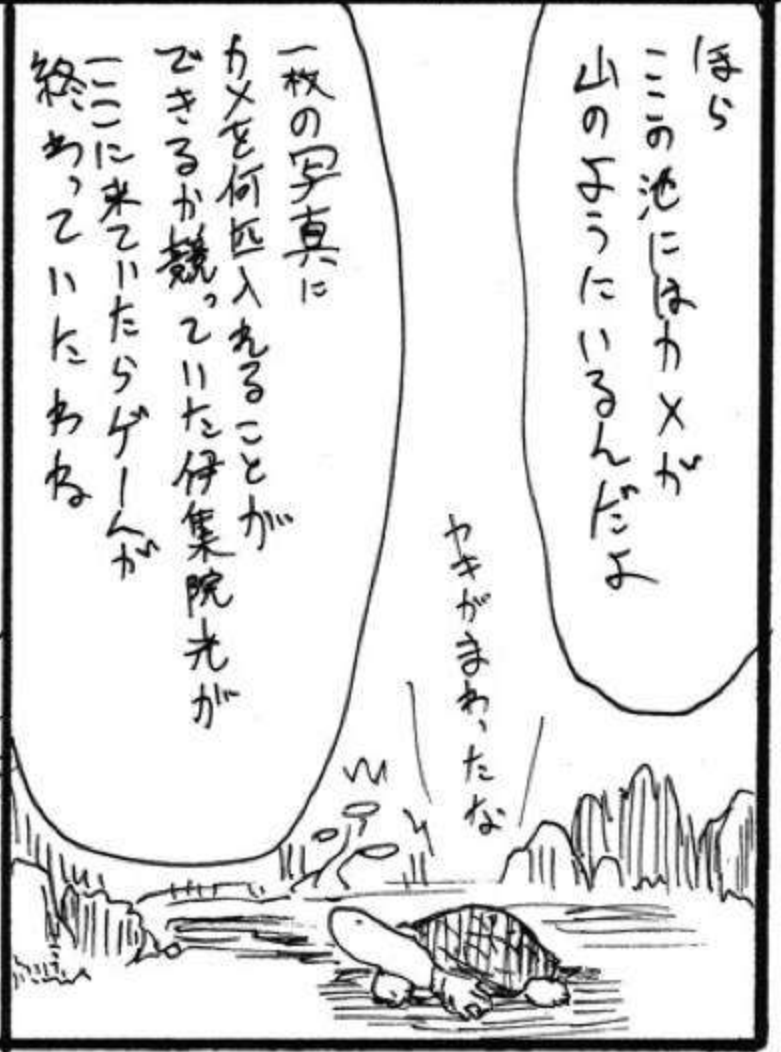 ほら
ここの池にはカメが
山のようにいるんだよ
ヤキがまわったな
一枚の写真に
カメを何匹入れることが
できるか競っていた伊集院光が
ここに来ていたらゲームが
終わっていたわね